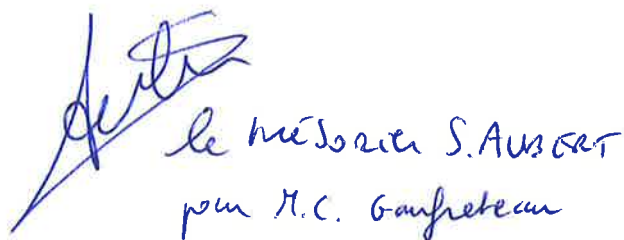 le trésorier S. AUBERT
pour M.C. Gaufreteau